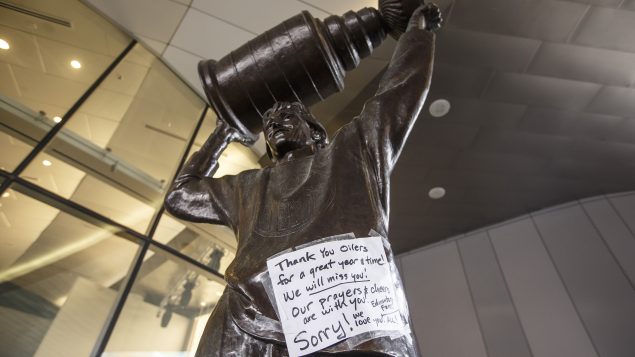 Thank You Oilers
for a great year & time!
We will miss you!
Our prayers & cheers
are with you.
Edmonton
Fans
Sorry! We
love you All!